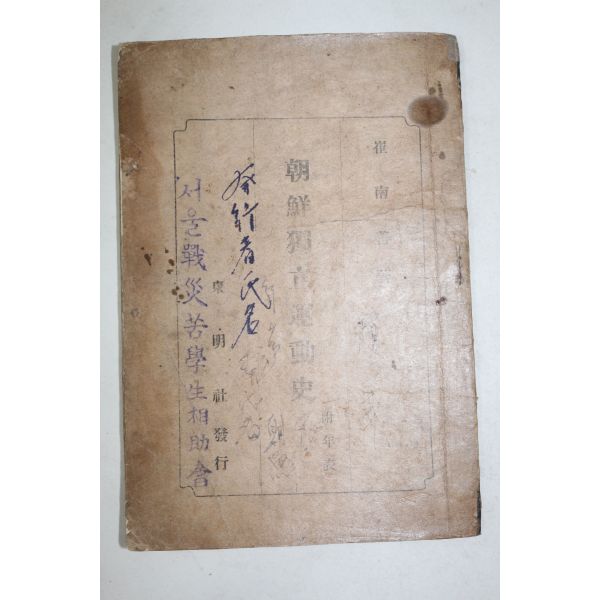 崔南善
朝鮮獨立運動史
附年表
東明社發行
發行者氏名
서울戰災苦學生相助會